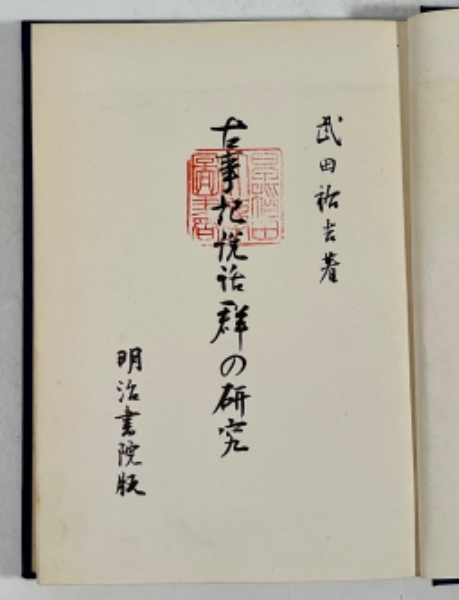 武田祐吉著
古事記説話群の研究
明治書院版